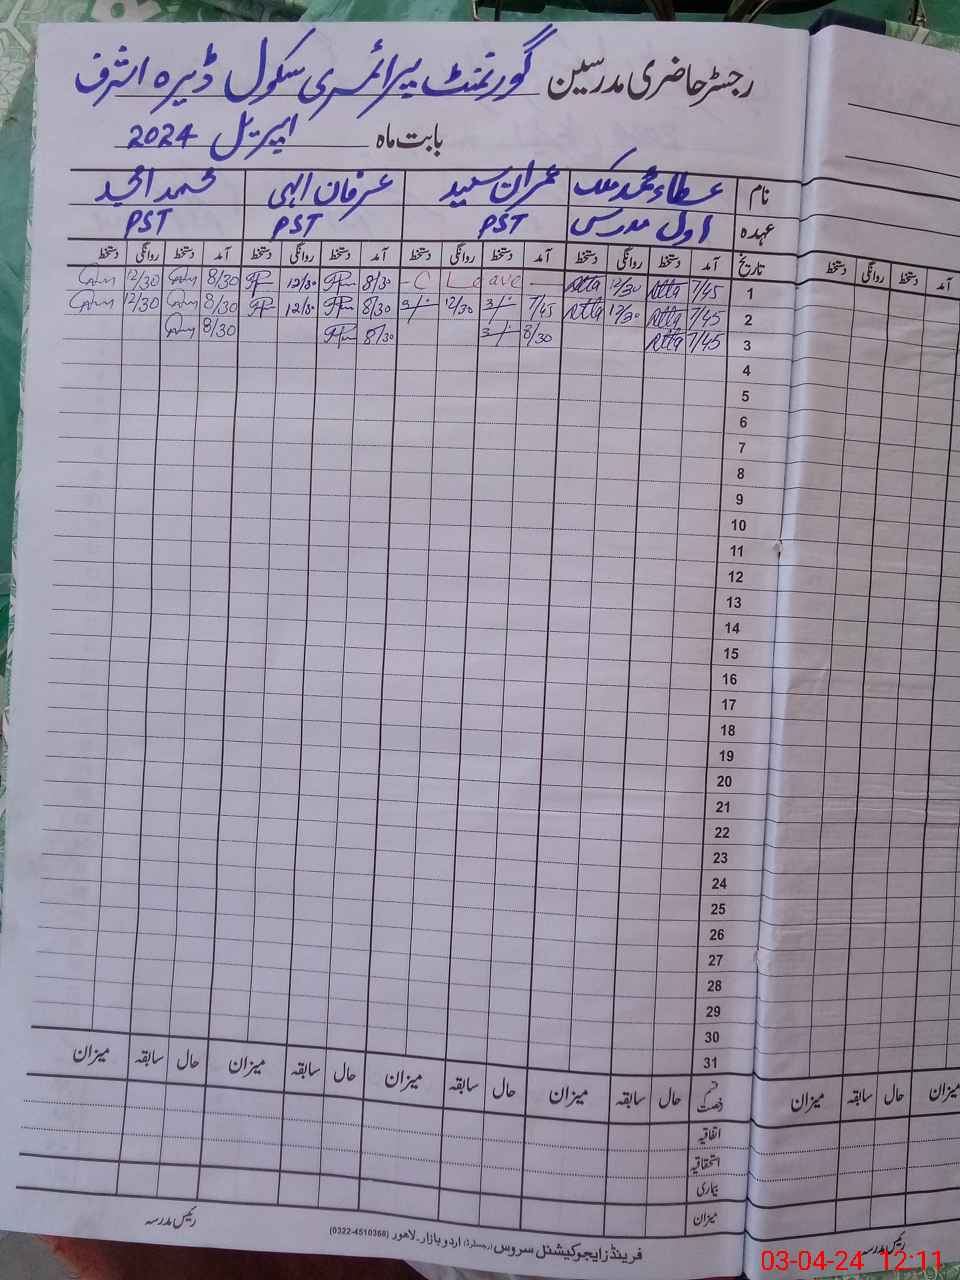 رجسٹر حاضری مدرسین گورنمنٹ پرائمری سکول ڈیرہ اشرف
بابت ماہ اپریل 2024
نام عطاء محمد ملک عمران سعید عرفان الہی محمد امجد
عہدہ اول مدرس PST PST PST
تاریخ آمد دستخط روانگی دستخط آمد دستخط روانگی دستخط آمد دستخط روانگی دستخط آمد دستخط روانگی دستخط
1 7/45 Atta 12/30 Atta C Leave 8/30 12/30 8/30 12/30
2 7/45 Atta 12/30 Atta 7/45 12/30 8/30 12/30 8/30 12/30
3 7/45 Atta 8/30 8/30 8/30
4
5
6
7
8
9
10
11
12
13
14
15
16
17
18
19
20
21
22
23
24
25
26
27
28
29
30
31
قسم رخصت حال سابقہ میزان حال سابقہ میزان حال سابقہ میزان حال سابقہ میزان
اتفاقیہ
استحقاقیہ
بیماری
میزان
رئیس مدرسہ
فرینڈز ایجوکیشنل سروس (رجسٹرڈ) اردو بازار۔لاہور (0322-4510368)
آمد دستخط روانگی دستخط
میزان سابقہ حال میزان
رئیس مدرسہ
03-04-24 12:11